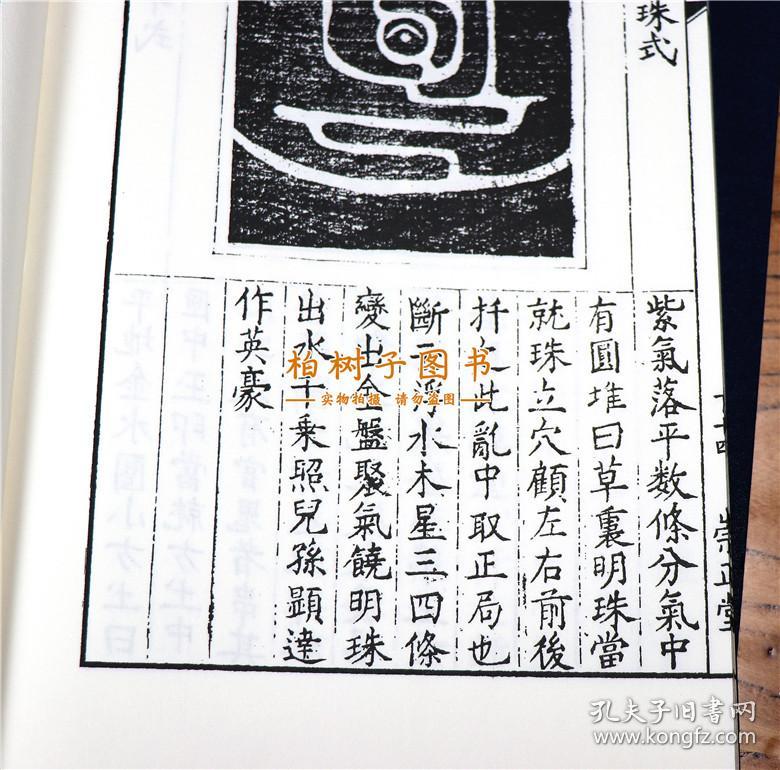 珠式
紫氣落平數條分氣中
有圓堆曰草裏明珠當
就珠立穴顧左右前後
扦之此亂中取正局也
斷云浮水木星三四條
變出金盤聚氣饒明珠
出水千乘照兒孫顯達
作英豪
十四
崇正堂
柏树子图书
实物拍摄 请勿盗图
孔夫子旧书网
www.kongfz.com